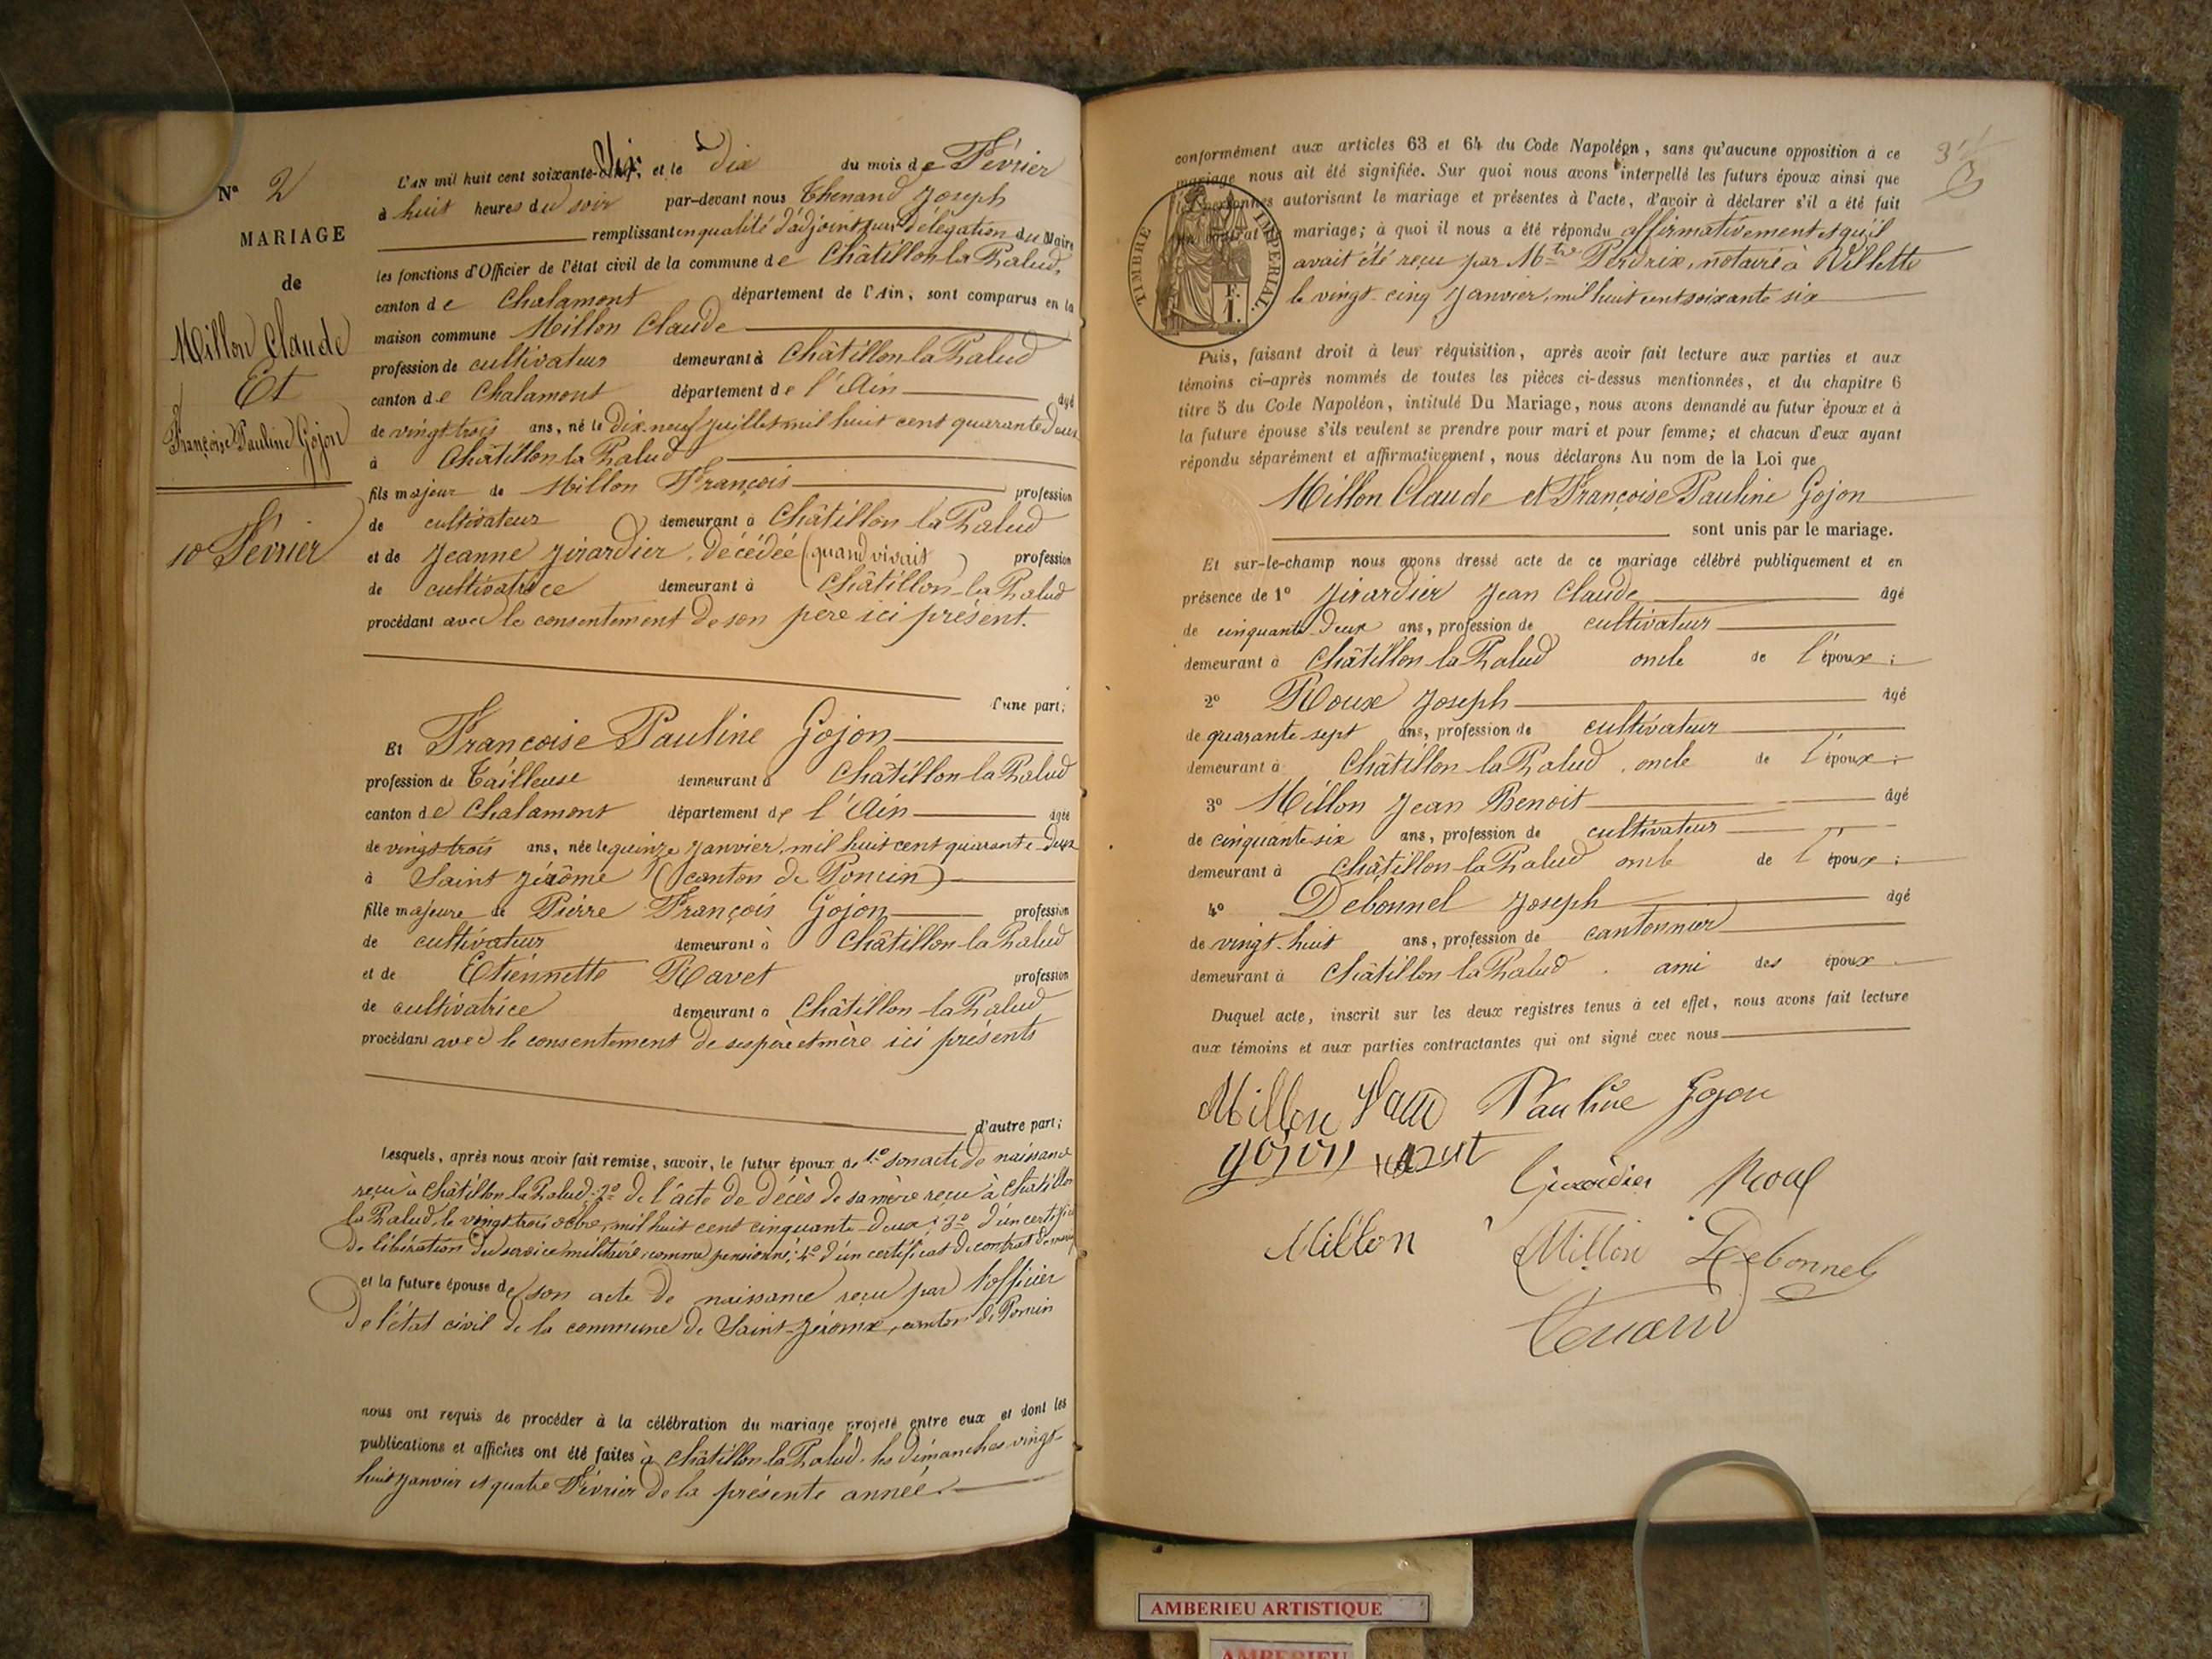 N° 2
MARIAGE
de
Millon Claude
Et
Françoise Pauline Gojon
10 Février
L'AN mil huit cent soixante-Six, et le dix du mois de Février
à huit heures du soir par-devant nous Thenard Joseph
remplissant en qualité d'adjoint par délégation du Maire
les fonctions d'Officier de l'état civil de la commune de Châtillon la Palud,
canton de Chalamont département de l'Ain, sont comparus en la
maison commune Millon Claude
profession de cultivateur demeurant à Châtillon la Palud
canton de Chalamont département de l'Ain âgé
de vingt trois ans, né le Dix-neuf Juillet mil huit cent quarante Deux
à Châtillon la Palud
fils majeur de Millon François profession
de cultivateur demeurant à Châtillon la Palud
et de Jeanne Jirardier, Décédée (quand vivait) profession
de cultivatrice demeurant à Châtillon la Palud
procédant avec le consentement de son père ici présent.
d'une part;
Et Françoise Pauline Gojon
profession de Tailleuse demeurant à Châtillon la Palud
canton de Chalamont département de l'Ain âgée
de vingt trois ans, née le quinze Janvier, mil huit cent quarante-deux
à Saint Jérôme (canton de Poncin)
fille majeure de Pierre François Gojon profession
de cultivateur demeurant à Châtillon la Palud
et de Etiennette Ravet profession
de cultivatrice demeurant à Châtillon la Palud
procédant avec le consentement de ses père et mère ici présents
d'autre part;
Lesquels, après nous avoir fait remise, savoir, le futur époux de 1° son acte de naissance
reçu à Châtillon la Palud; 2° de l'acte de décès de sa mère reçu à Châtillon
la Palud, le vingt trois 8bre, mil huit cent cinquante-deux; 3° d'un certificat
de libération du service militaire comme pensionné; 4° d'un certificat de contrat de
et la future épouse de son acte de naissance reçu par l'officier
de l'état civil de la commune de Saint-Jérôme, canton de Poncin
nous ont requis de procéder à la célébration du mariage projeté entre eux et dont les
publications et affiches ont été faites à Châtillon la Palud, les dimanches vingt-
huit Janvier et quatre Février de la présente année.
conformément aux articles 63 et 64 du Code Napoléon, sans qu'aucune opposition à ce
mariage nous ait été signifiée. Sur quoi nous avons interpellé les futurs époux ainsi que
les personnes autorisant le mariage et présentes à l'acte, d'avoir à déclarer s'il a été fait
un contrat de mariage; à quoi il nous a été répondu affirmativement et qu'il
avait été reçu par Mtre Perdrix, notaire à Villette
le vingt-cinq Janvier, mil huit cent soixante six
TIMBRE IMPERIAL.
F.
1.
Puis, faisant droit à leur réquisition, après avoir fait lecture aux parties et aux
témoins ci-après nommés de toutes les pièces ci-dessus mentionnées, et du chapitre 6
titre 5 du Code Napoléon, intitulé Du Mariage, nous avons demandé au futur époux et à
la future épouse s'ils veulent se prendre pour mari et pour femme; et chacun d'eux ayant
répondu séparément et affirmativement, nous déclarons Au nom de la Loi que
Millon Claude et Françoise Pauline Gojon
sont unis par le mariage.
Et sur-le-champ nous avons dressé acte de ce mariage célébré publiquement et en
présence de 1° Jirardier Jean Claude âgé
de cinquante-deux ans, profession de cultivateur
demeurant à Châtillon la Palud oncle de l'époux;
2° Roux Joseph âgé
de quarante-sept ans, profession de cultivateur
demeurant à Châtillon la Palud, oncle de l'époux;
3° Millon Jean Benoit âgé
de cinquante six ans, profession de cultivateur
demeurant à Châtillon la Palud oncle de l'époux;
4° Debonnel Joseph âgé
de vingt-huit ans, profession de cantonnier
demeurant à Châtillon la Palud. ami des époux
Duquel acte, inscrit sur les deux registres tenus à cet effet, nous avons fait lecture
aux témoins et aux parties contractantes qui ont signé avec nous
Millon Pauline Gojon
gojon ravet
Girardier Roux
Millon Millon Debonnel
Tenard
AMBERIEU ARTISTIQUE
AMBERIEU